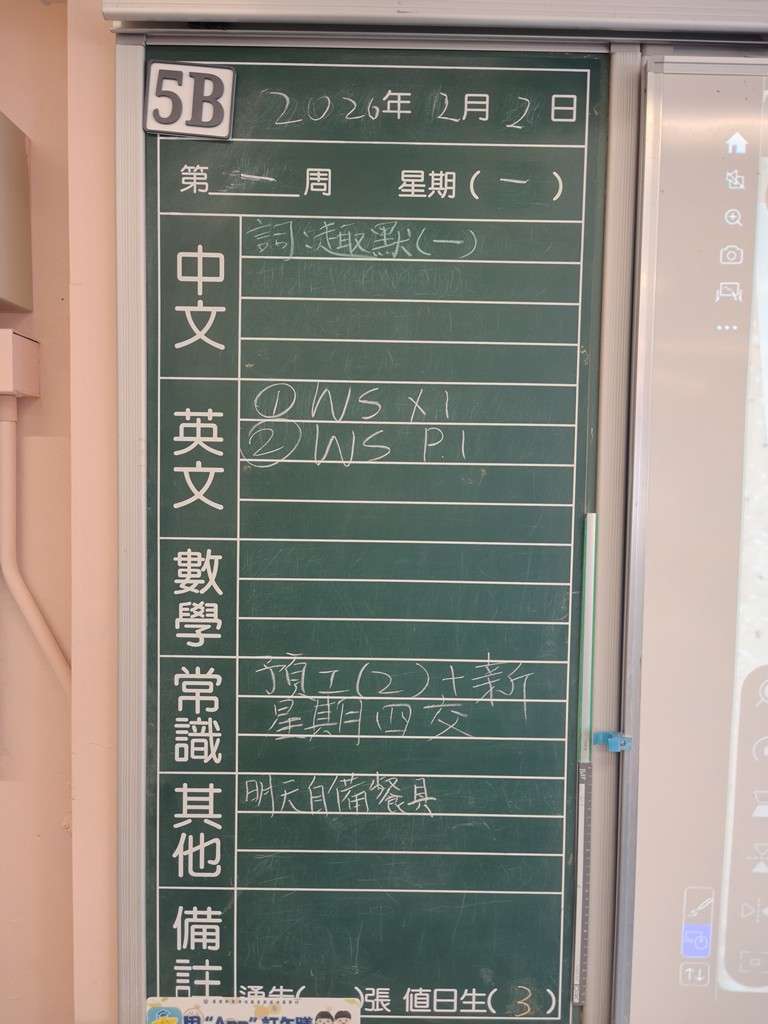 5B
2026年 2月 2日
第一周 星期(一)
中文
詞淺取默(一)
英文
① WS X.1
② WS P.1
數學
常識
預工(2)+新
星期四交
其他
明天自備餐具
備註
通告( )張 值日生(3)
用“App”訂午膳